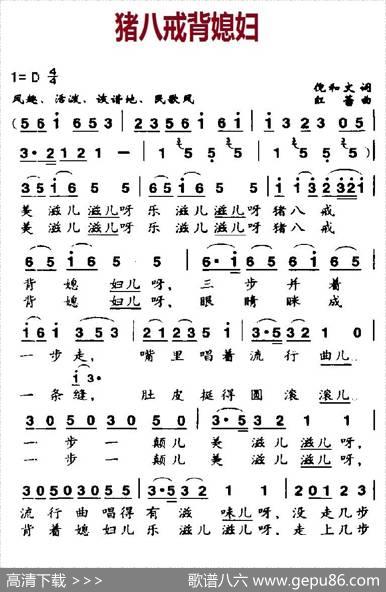 猪八戒背媳妇
1= D 4/4
风趣、活泼、诙谐地、民歌风
倪和文 词
红蔷 曲
(5 6 i 6 5 3 | 2 3 5 6 i 6 5 |
3· 2 1 2 1 — | 1 5 5 5 5) |
3 5 i 6 5 5
美滋儿滋儿呀 乐滋儿滋儿呀猪八戒
美滋儿滋儿呀 乐滋儿滋儿呀猪八戒
背媳妇儿呀,三步并着
背媳妇儿呀,眼睛眯成
i 6 i 3 5 3 | 2 1 2 3 5
一步走,嘴里唱着流行曲儿
i 3·
一条缝,肚皮挺得圆滚滚儿
3 0 5 0 3 0 5 0 5 5 | 3· 5 3 2 1 1 1
一步一颠儿美滋儿滋儿呀,
一步一颠儿美滋儿滋儿呀,
3 0 5 0 3 0 5 5 | 3· 5 3 2 1 1 1 | 2 0 1 2 3
流行曲唱得有滋味儿呀,没走几步
背着媳妇儿乐滋儿滋儿呀,走上几步
高清下载 >>>
歌谱八六 www.gepu86.com